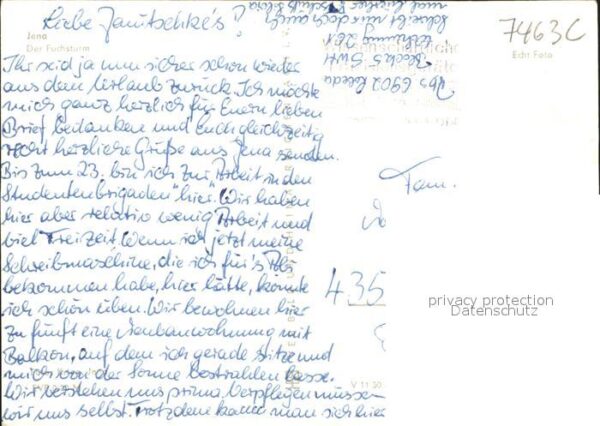 Liebe Janitschke's!
Jena
Der Fuchsturm
Ihr seid ja nun sicher schon wieder
aus dem Urlaub zurück. Ich möchte
mich ganz herzlich für Euern lieben
Brief bedanken und Euch gleichzeitig
recht herzliche Grüße aus Jena senden.
Bis zum 23. bin ich zur Arbeit in den
"Studentenbrigaden" hier. Wir haben
hier aber relativ wenig Arbeit und
viel Freizeit. Wenn ich jetzt meine
Schreibmaschine, die ich für's
bekommen habe, hier hätte, könnte
ich schön üben. Wir bewohnen hier
zu fünft eine Neubauwohnung mit
Balkon, auf dem ich gerade sitze und
mich von der Sonne bestrahlen lasse.
Wir verstehen uns prima. Verpflegen müssen
wir uns selbst. Trotzdem kann man sich hier
7463C
Echt Foto
6902
Schreibt mir doch auch
Fam.
435
privacy protection
Datenschutz
V 11 50